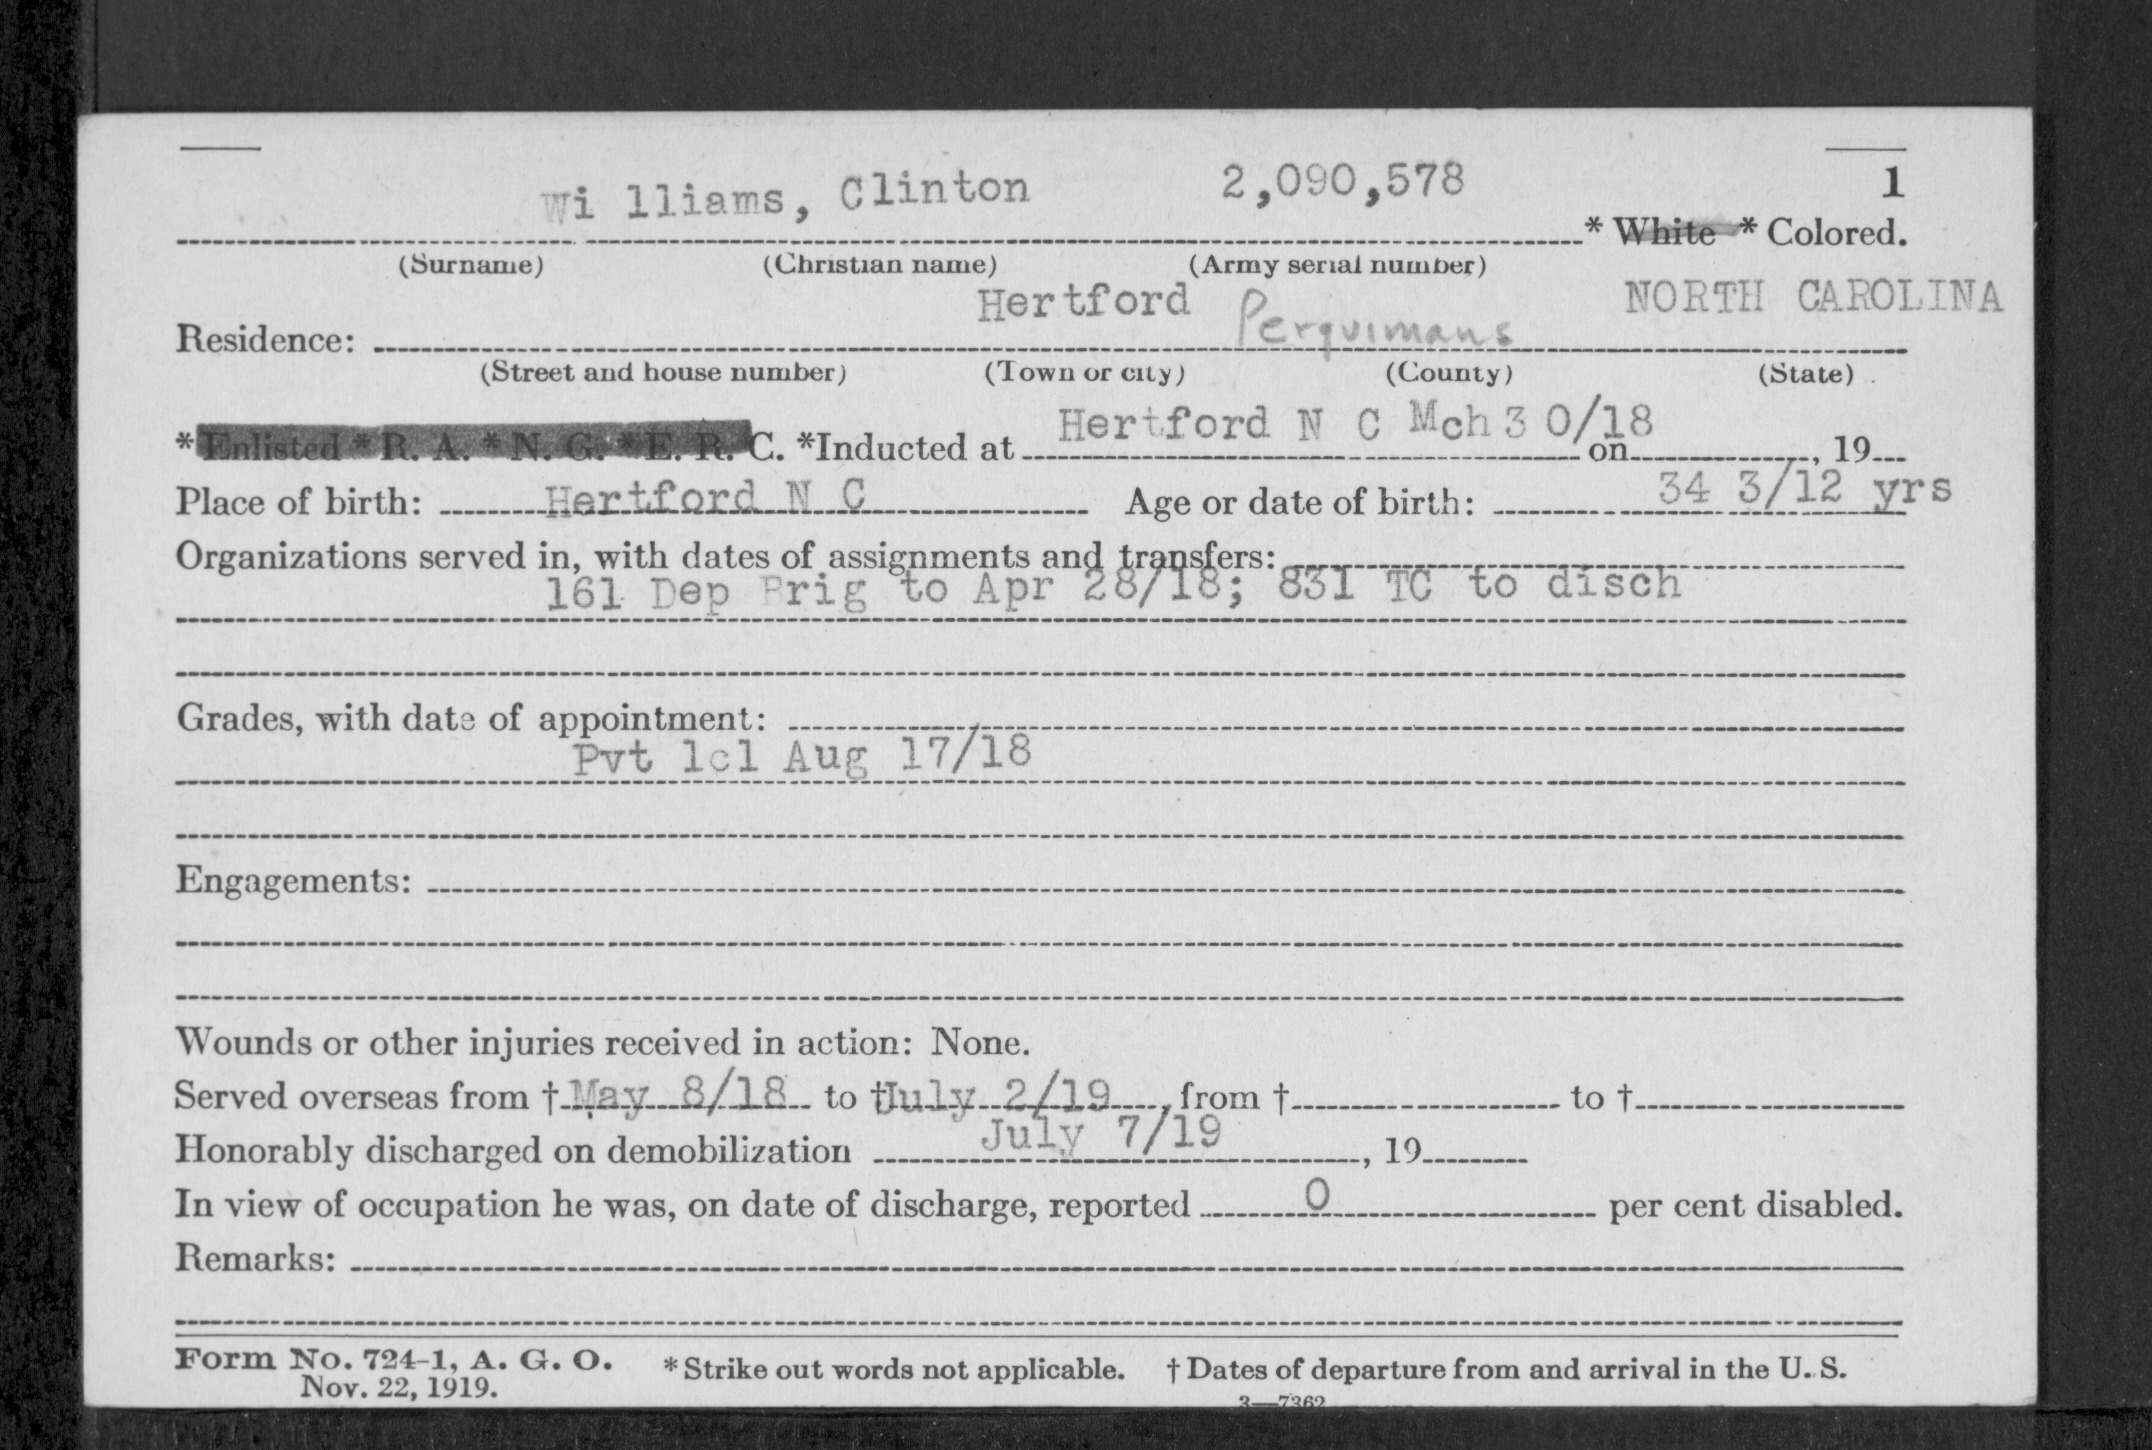 Wi lliams, Clinton 2,090,578 1
* White * Colored.
(Surname) (Christian name) (Army serial number)
Hertford Perquimans NORTH CAROLINA
Residence:
(Street and house number) (Town or city) (County) (State)
* Enlisted * R. A. * N. G. * E. R. C. *Inducted at Hertford N C Mch 3 0/18 on , 19
Place of birth: Hertford N C Age or date of birth: 34 3/12 yrs
Organizations served in, with dates of assignments and transfers:
161 Dep Brig to Apr 28/18; 831 TC to disch
Grades, with date of appointment:
Pvt 1cl Aug 17/18
Engagements:
Wounds or other injuries received in action: None.
Served overseas from † May 8/18 to † July 2/19, from † to †
Honorably discharged on demobilization July 7/19 , 19
In view of occupation he was, on date of discharge, reported 0 per cent disabled.
Remarks:
Form No. 724-1, A. G. O. * Strike out words not applicable. † Dates of departure from and arrival in the U. S.
Nov. 22, 1919.
3—7362